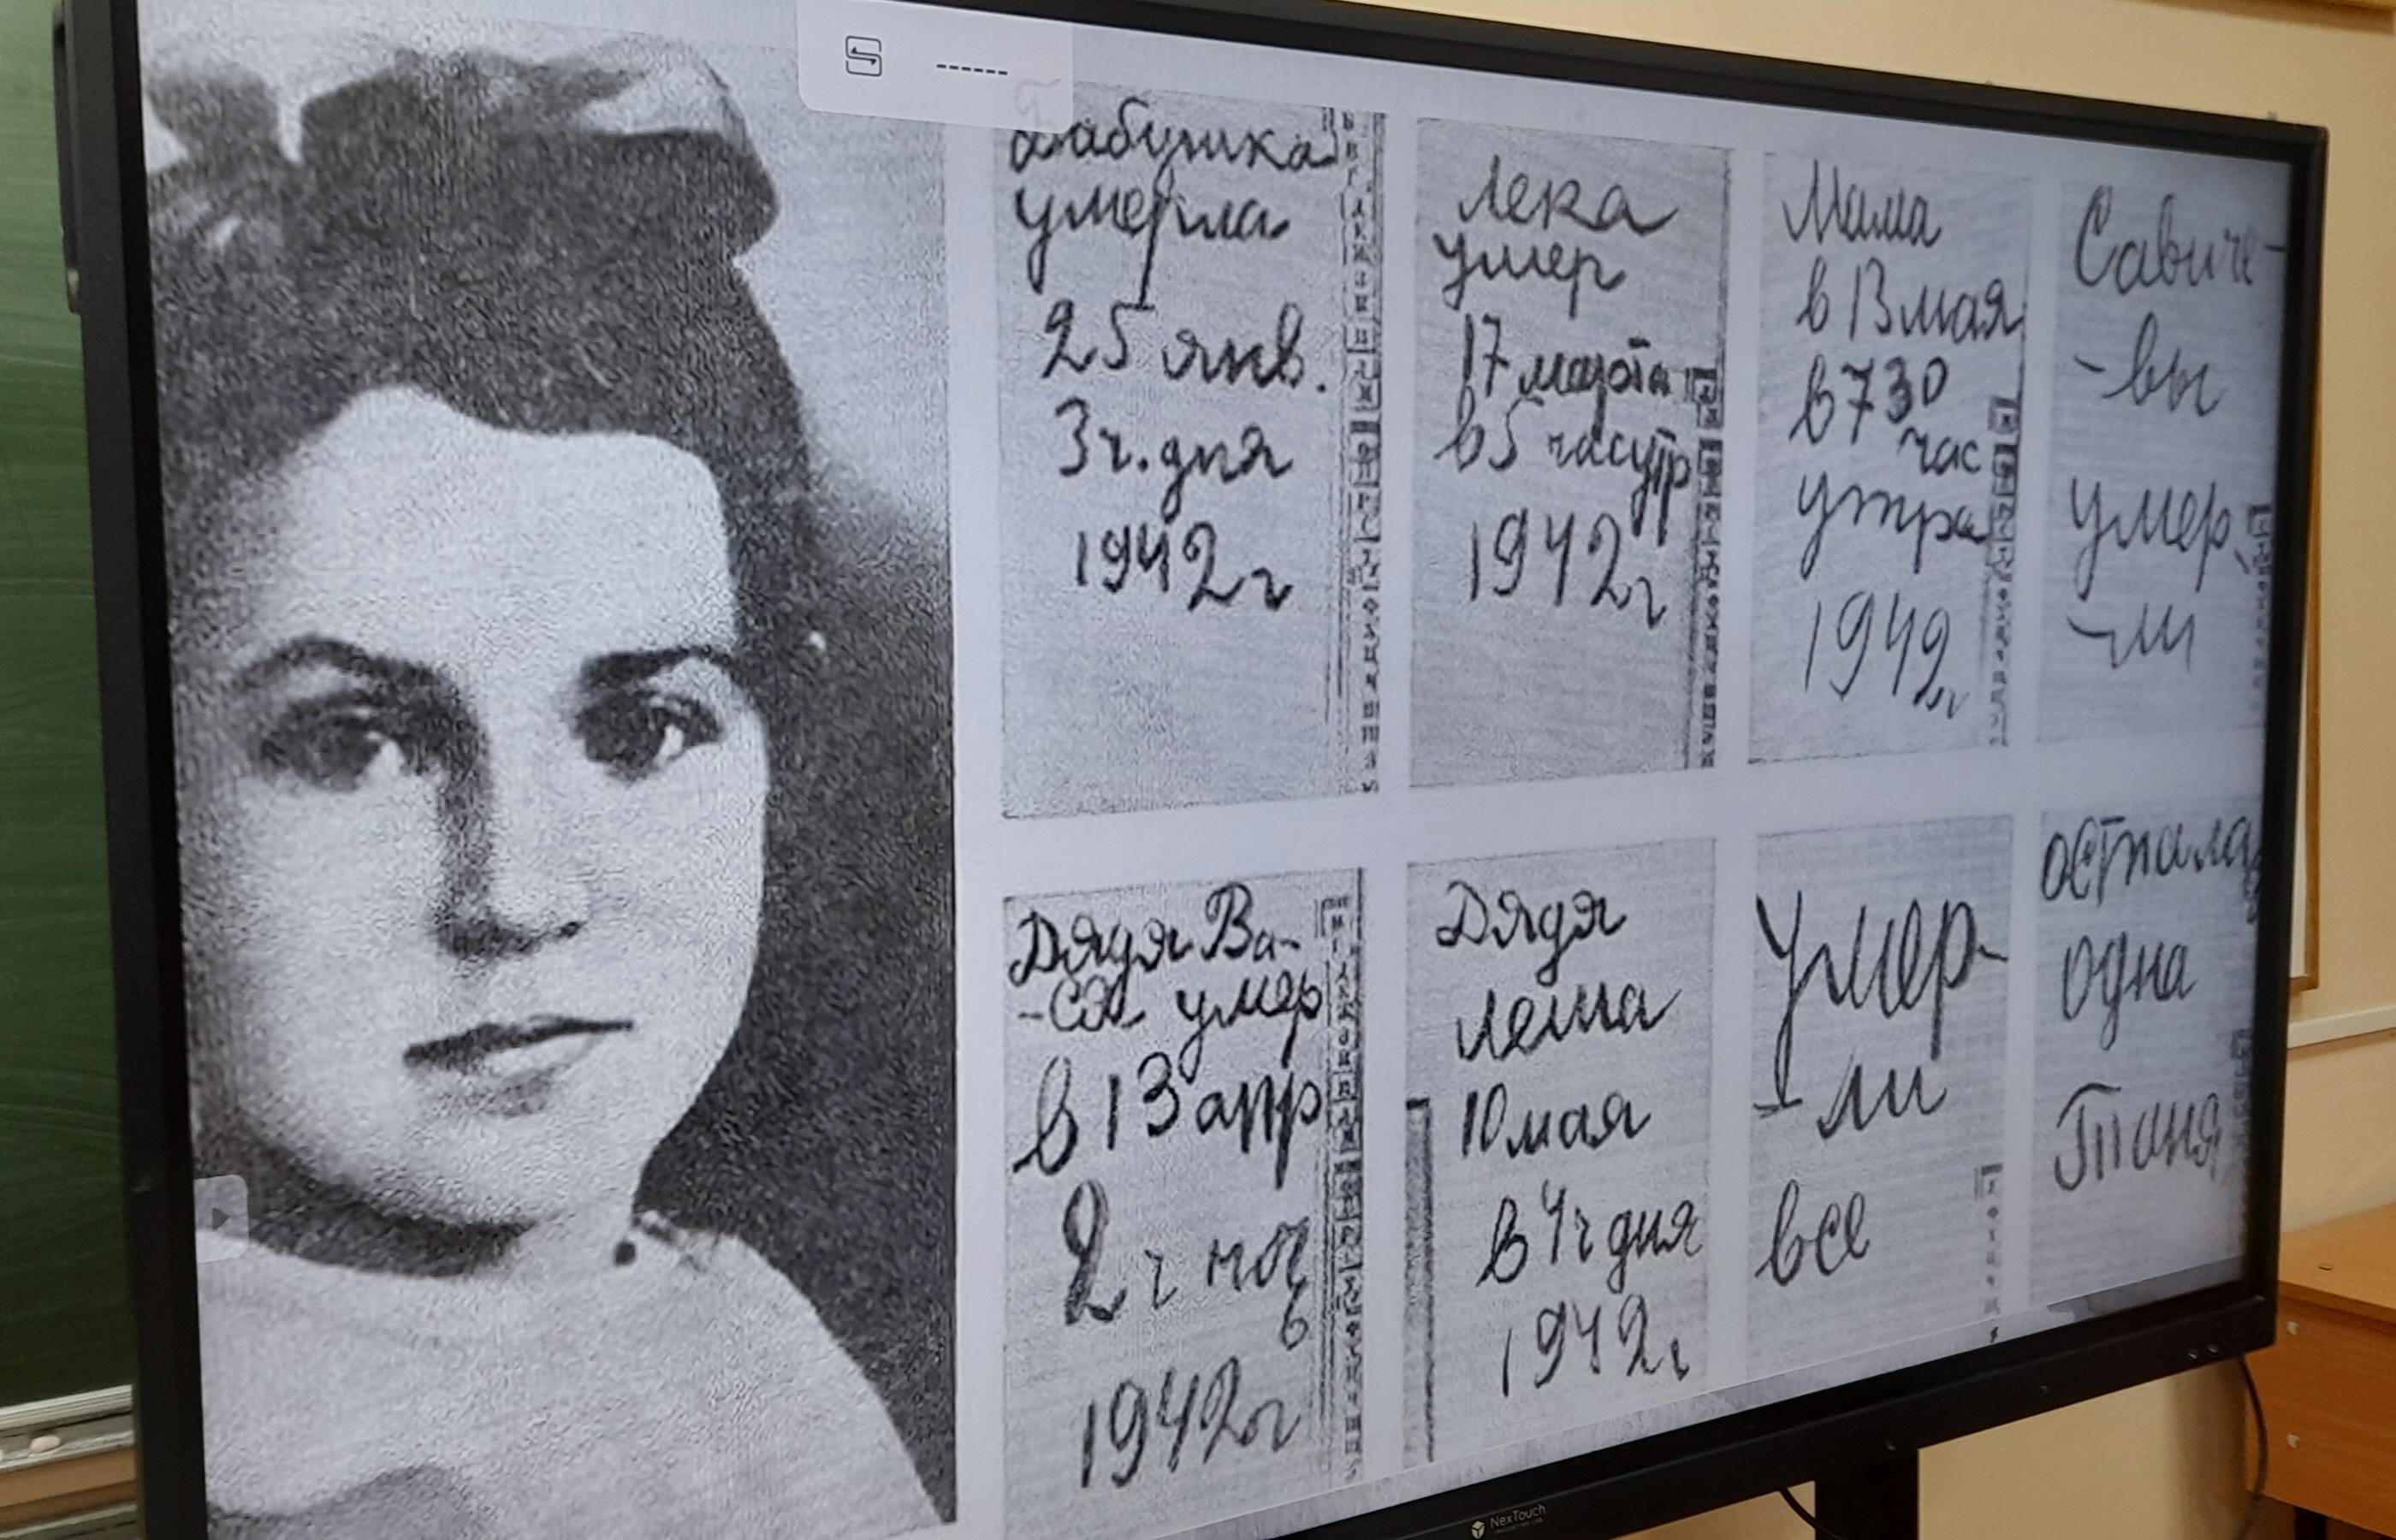 Бабушка
умерла
25 янв.
3ч. дня
1942г
Лека
умер
17 марта
в5 часутр
1942г
Мама
в 13 мая
в 730
час
утра
1942г
Савиче-
-вы
умер
-ли
Дядя Ва-
-ся умер
в 13 апр
2 ч ноч
ь
1942г
Дядя
Леша
10 мая
в 4ч дня
1942г
Умер-
-ли
все
остала
одна
Таня
NexTouch